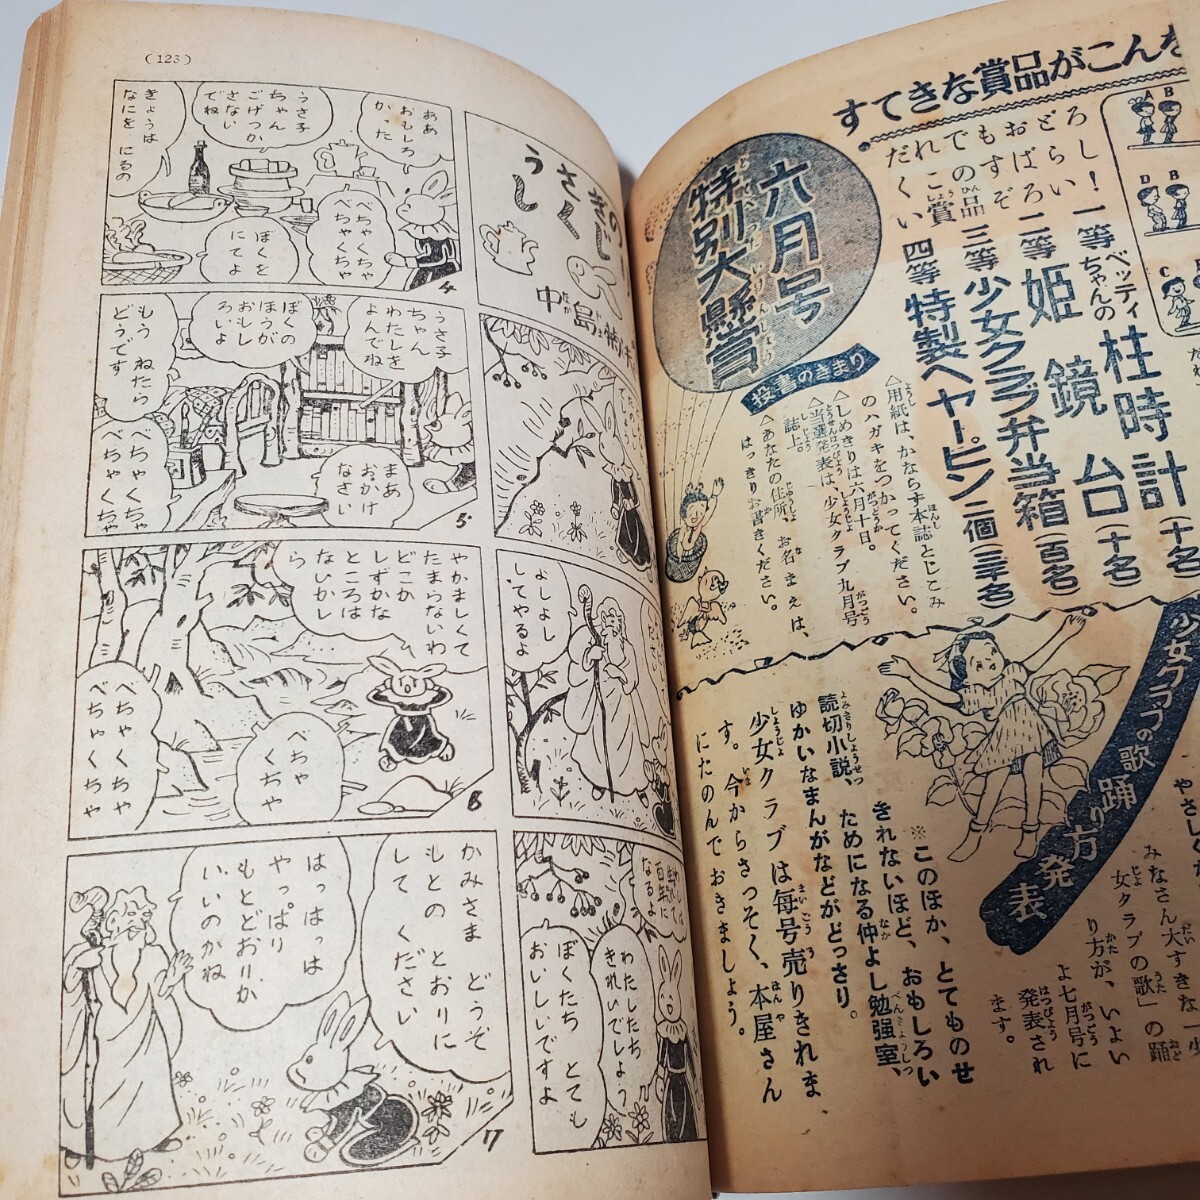 (123)
うさぎの
さくじ
うし
中島
よしよし
してやるよ
わたしたち
きれいでしよう
ぼくたち とても
おいしいですよ
ああ
おもしろ
かった
うさ子
ちゃん
ごげつか
さない
でね
きょうは
なにを にるの
べちゃくちゃ
べちゃくちゃ
ぼくを
にてよ
4
うさ子
ちゃん
わたしを
よんでね
ぼくの
ほうが
おもし
ろいよ
もう ねたら
どうです
まあ
おかけ
なさい
べちゃくちゃ
べちゃくちゃ
5
やかましくて
たまらないわ
どこか
しずかな
ところは
ないかし
ら
べちゃ
くちゃ
べちゃくちゃ
べちゃくちゃ
6
かみさま どうぞ
もとの とおりに
して ください
はっはっは
やっぱり
もとどおりが
いいのかね
7
すてきな賞品がこんな
六月号
特別大懸賞
どらい
おばろ
もすぞ
での品
れこ賞
だくい
ろし!
一等 ベッティちゃんの 柱時計(十名)
二等 姫鏡台(十名)
三等 少女クラブ弁当箱(百名)
四等 特製ヘヤーピン二個(三千名)
A
B
D
B
C
投書のきまり
△用紙は、かならず本誌とじこみ
のハガキをつかってください。
△しめきりは六月十日。
△当選発表は、少女クラブ九月号
誌上。
△あなたの住所、お名まえは、
はっきりお書きください。
少女クラブの歌 踊り方発表
みなさん大すきな「少
女クラブの歌」の踊
り方が、いよい
よ七月号に
発表され
ます。
※このほか、とてものせ
きれないほど、おもしろい
読切小説、ためになる仲よし勉強室、
ゆかいなまんがなどがどっさり。
少女クラブは毎号売りきれま
す。今からさっそく、本屋さん
にたのんでおきましょう。